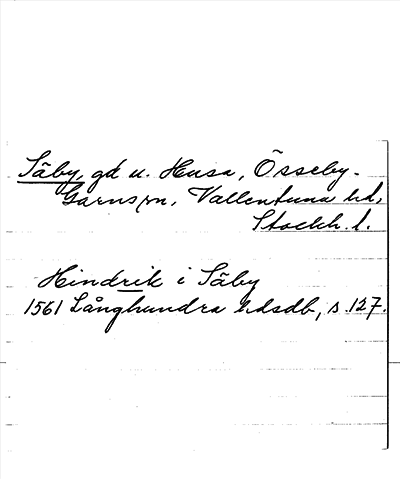 Säby, gd u. Husa, Össeby-
Garns sn, Vallentuna hd,
Stockh. l.
Hindrik i Säby
1561 Långhundra hdsdb, s. 127.